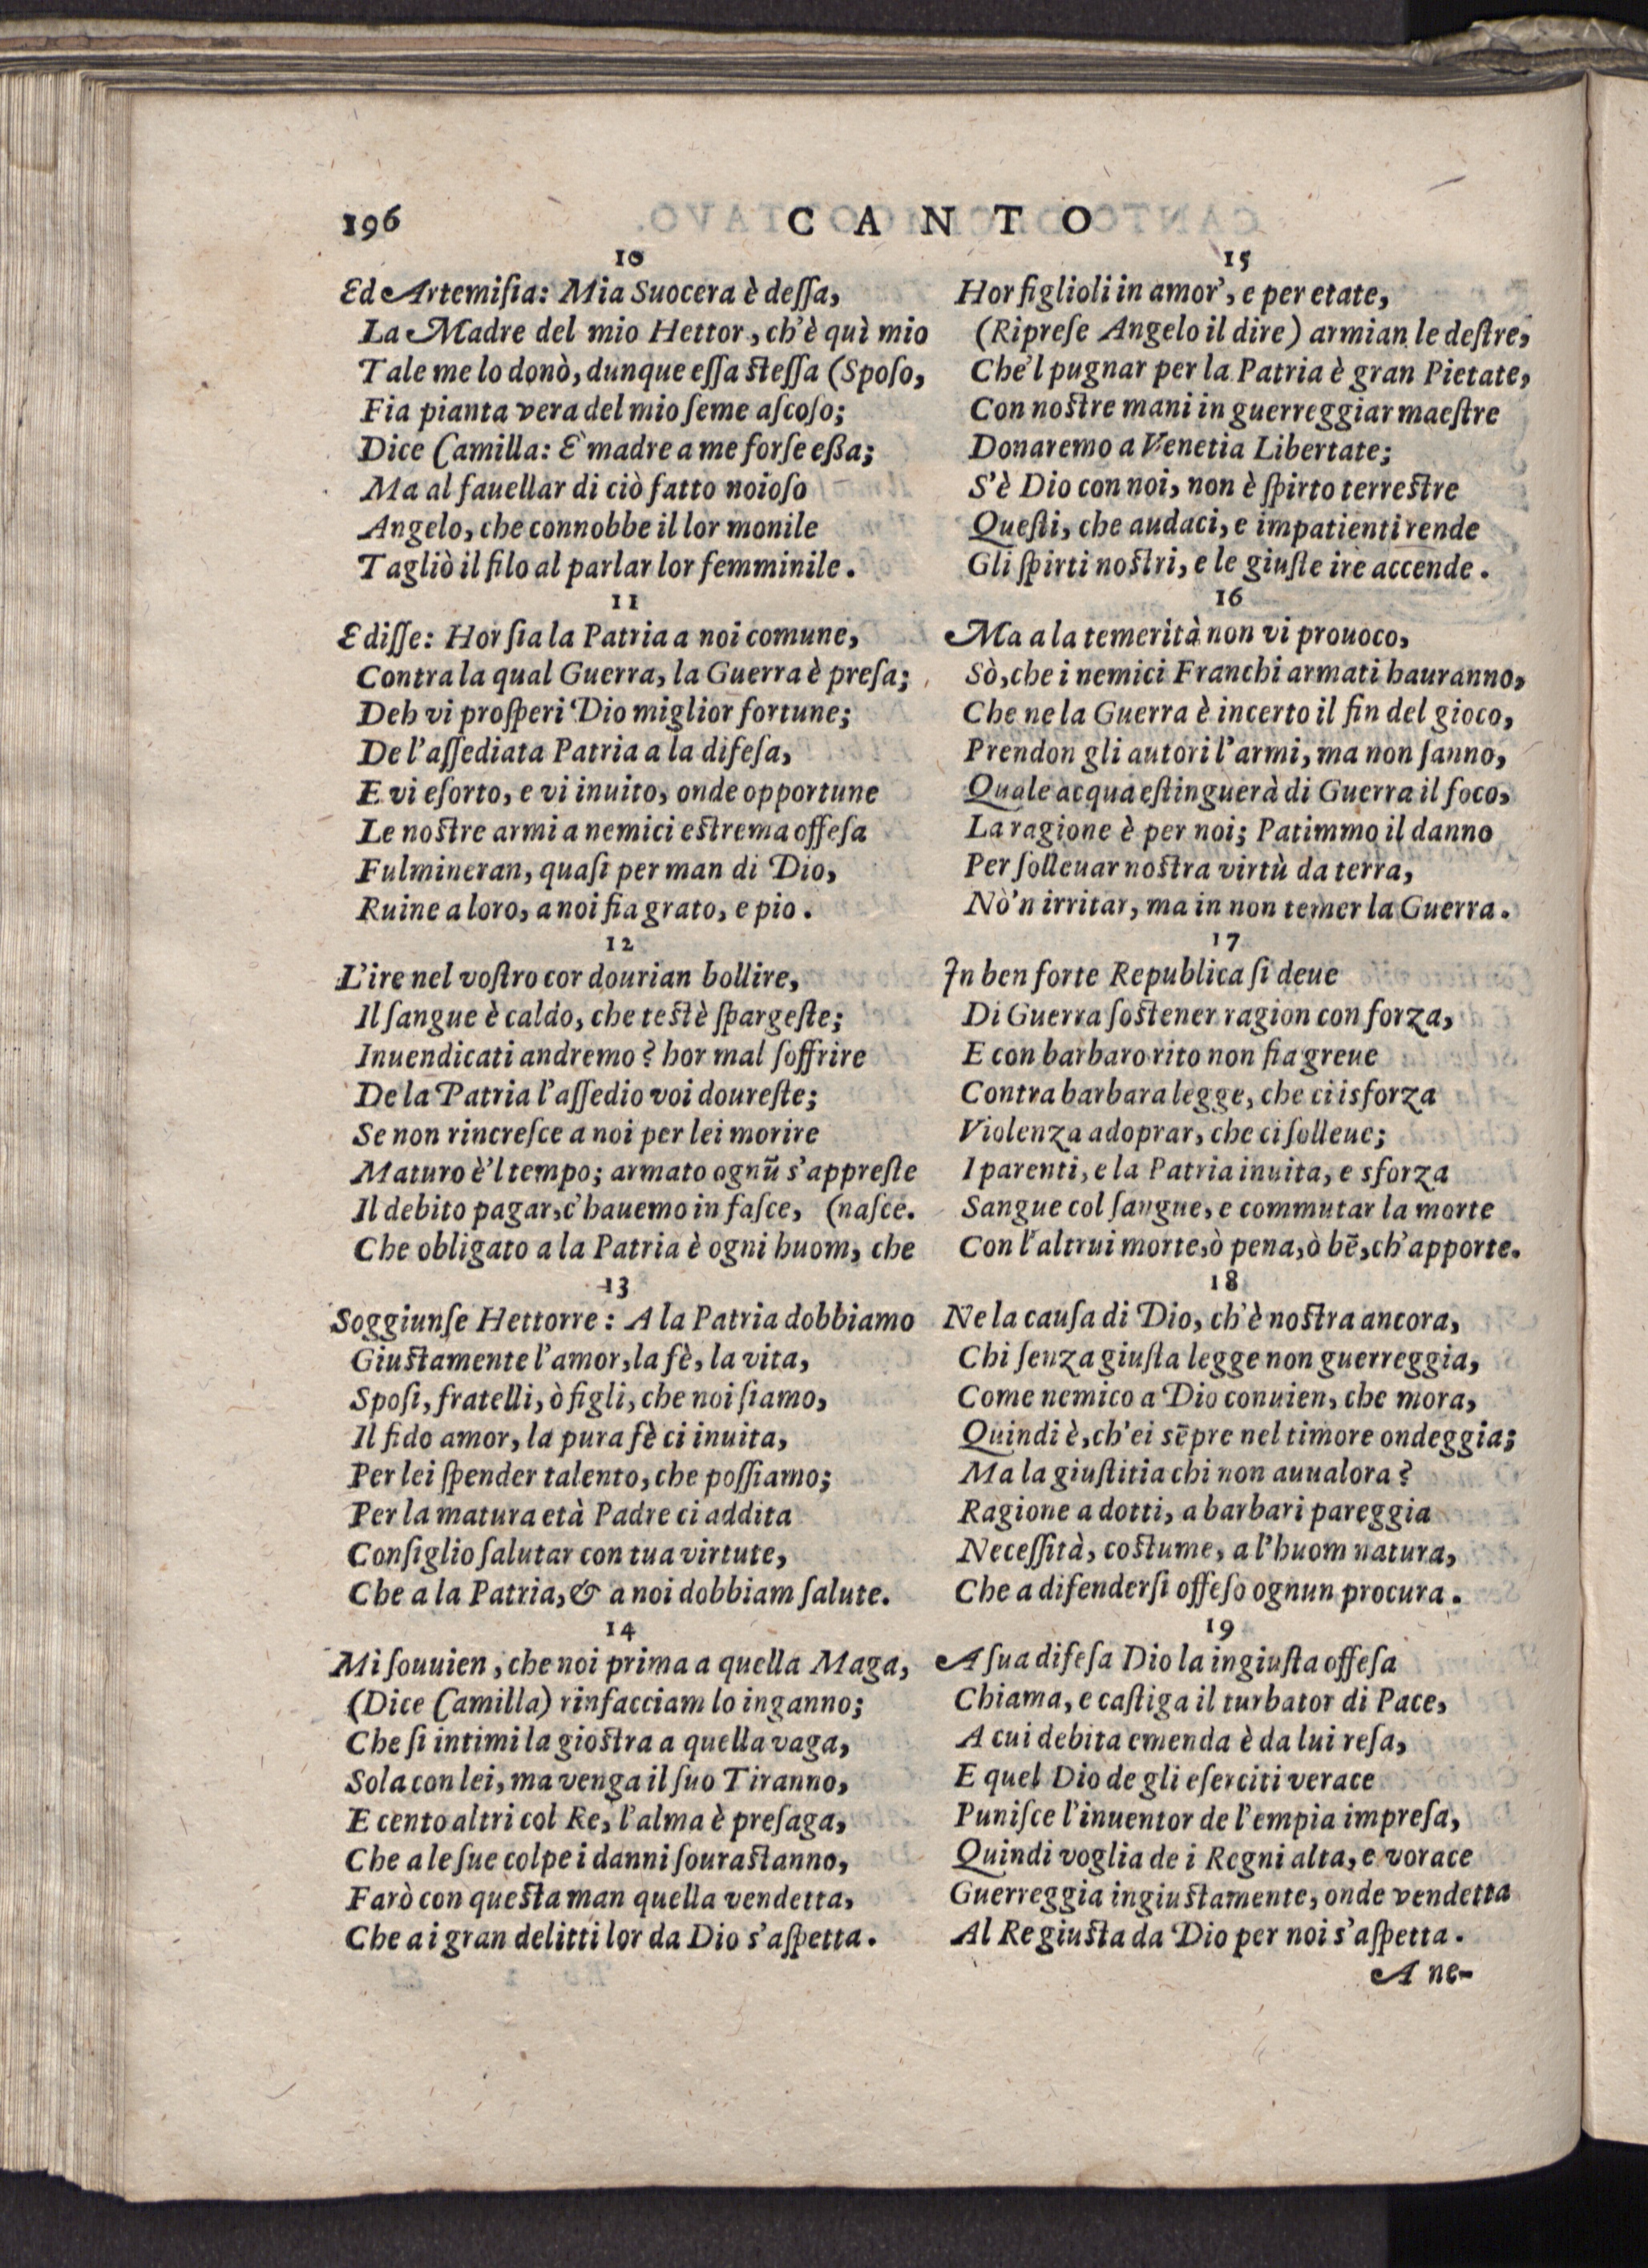 196
CANTO
10
Ed Artemiſia: Mia Suocera è deſſa,
La Madre del mio Hettor, ch'è quì mio
Tale me lo donò, dunque eſſa ſteſſa (Spoſo,
Fia pianta vera del mio ſeme aſcoſo;
Dice Camilla: E' madre a me forſe eßa;
Ma al fauellar di ciò fatto noioſo
Angelo, che connobbe il lor monile
Tagliò il filo al parlar lor femminile.
11
E diſſe: Hor ſia la Patria a noi comune,
Contra la qual Guerra, la Guerra è preſa;
Deh vi proſperi Dio miglior fortune;
De l'aſſediata Patria a la difeſa,
E vi eſorto, e vi inuito, onde opportune
Le noſtre armi a nemici eſtrema offeſa
Fulmineran, quaſi per man di Dio,
Ruine a loro, a noi fia grato, e pio.
12
L'ire nel voſtro cor dourian bollire,
Il ſangue è caldo, che teſtè ſpargeſte;
Inuendicati andremo? hor mal ſoffrire
De la Patria l'aſſedio voi doureſte;
Se non rincreſce a noi per lei morire
Maturo è'l tempo; armato ognũ s'appreſte
Il debito pagar, c'hauemo in faſce, (naſce.
Che obligato a la Patria è ogni huom, che
13
Soggiunſe Hettorre: A la Patria dobbiamo
Giuſtamente l'amor, la fè, la vita,
Spoſi, fratelli, ò figli, che noi ſiamo,
Il fido amor, la pura fè ci inuita,
Per lei ſpender talento, che poſſiamo;
Per la matura età Padre ci addita
Conſiglio ſalutar con tua virtute,
Che a la Patria, & a noi dobbiam ſalute.
14
Mi ſouuien, che noi prima a quella Maga,
(Dice Camilla) rinfacciam lo inganno;
Che ſi intimi la gioſtra a quella vaga,
Sola con lei, ma venga il ſuo Tiranno,
E cento altri col Re, l'alma è preſaga,
Che a le ſue colpe i danni ſouraſtanno,
Farò con queſta man quella vendetta,
Che a i gran delitti lor da Dio s'aſpetta.
15
Hor figlioli in amor', e per etate,
(Ripreſe Angelo il dire) armian le deſtre,
Che'l pugnar per la Patria è gran Pietate,
Con noſtre mani in guerreggiar maeſtre
Donaremo a Venetia Libertate;
S'è Dio con noi, non è ſpirto terreſtre
Queſti, che audaci, e impatienti rende
Gli ſpirti noſtri, e le giuſte ire accende.
16
Ma a la temerità non vi prouoco,
Sò, che i nemici Franchi armati hauranno,
Che ne la Guerra è incerto il fin del gioco,
Prendon gli autori l'armi, ma non ſanno,
Quale acqua eſtinguerà di Guerra il foco,
La ragione è per noi; Patimmo il danno
Per ſolleuar noſtra virtù da terra,
Nò'n irritar, ma in non temer la Guerra.
17
In ben forte Republica ſi deue
Di Guerra ſoſtener ragion con forza,
E con barbaro rito non fia greue
Contra barbara legge, che ci isforza
Violenza adoprar, che ci ſolleue;
I parenti, e la Patria inuita, e sforza
Sangue col ſangue, e commutar la morte
Con l'altrui morte, ò pena, ò bẽ, ch'apporte.
18
Ne la cauſa di Dio, ch'è noſtra ancora,
Chi ſenza giuſta legge non guerreggia,
Come nemico a Dio conuien, che mora,
Quindi è, ch'ei sẽpre nel timore ondeggia;
Ma la giuſtitia chi non auualora?
Ragione a dotti, a barbari pareggia
Neceſſità, coſtume, a l'huom natura,
Che a difenderſi offeſo ognun procura.
19
A ſua difeſa Dio la ingiuſta offeſa
Chiama, e caſtiga il turbator di Pace,
A cui debita emenda è da lui reſa,
E quel Dio de gli eſerciti verace
Puniſce l'inuentor de l'empia impreſa,
Quindi voglia de i Regni alta, e vorace
Guerreggia ingiuſtamente, onde vendetta
Al Re giuſta da Dio per noi s'aſpetta.
A ne-